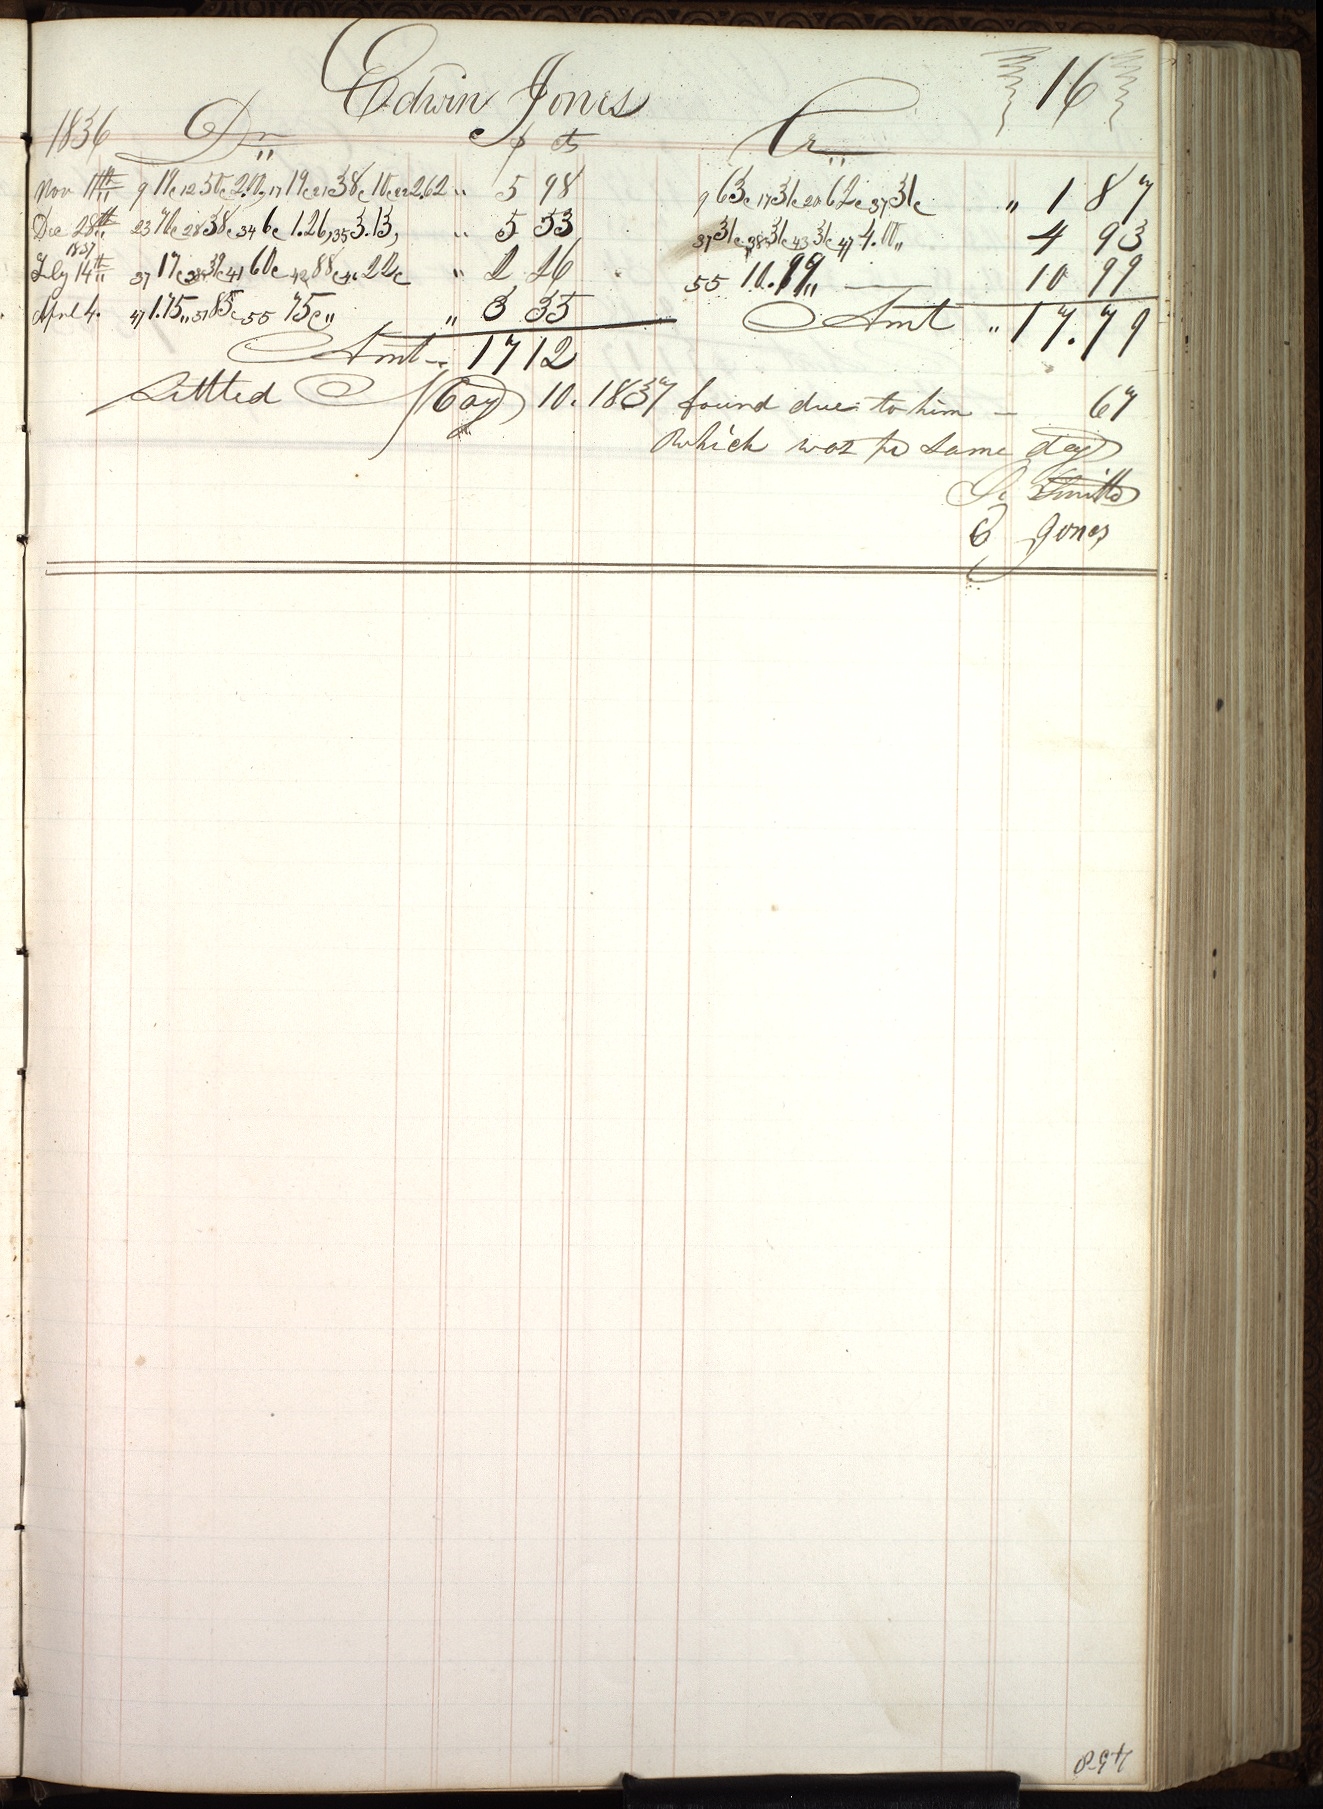 Edwin Jones 16
1836 Dr,, $ cts Cr,,
Nov 11th 9 19c 12 50c 2.10, 17 19c 21 38c 10c 22 2.62 " 5 98 9 63c 17 31c 20 62c 37 31c " 1 87
Dec 28th 23 70c 28 38c 34 6c 1.26, 35 3.13, " 5 53 37 31c 38 31c 43 31c 47 4.00,, 4 93
1837
Feby 14th 37 17c 38 39c 41 60c 42 88c 22c " 2 26 55 10.99,, — 10 99
Aprl 4. 47 1.75,, 51 85c 55 75c,, " 3 35 Amt " 17.79
Amt — 17 12
Settled May 10. 1837 found due to him — 67
Which was pd same day
S. Smith
E Jones
458